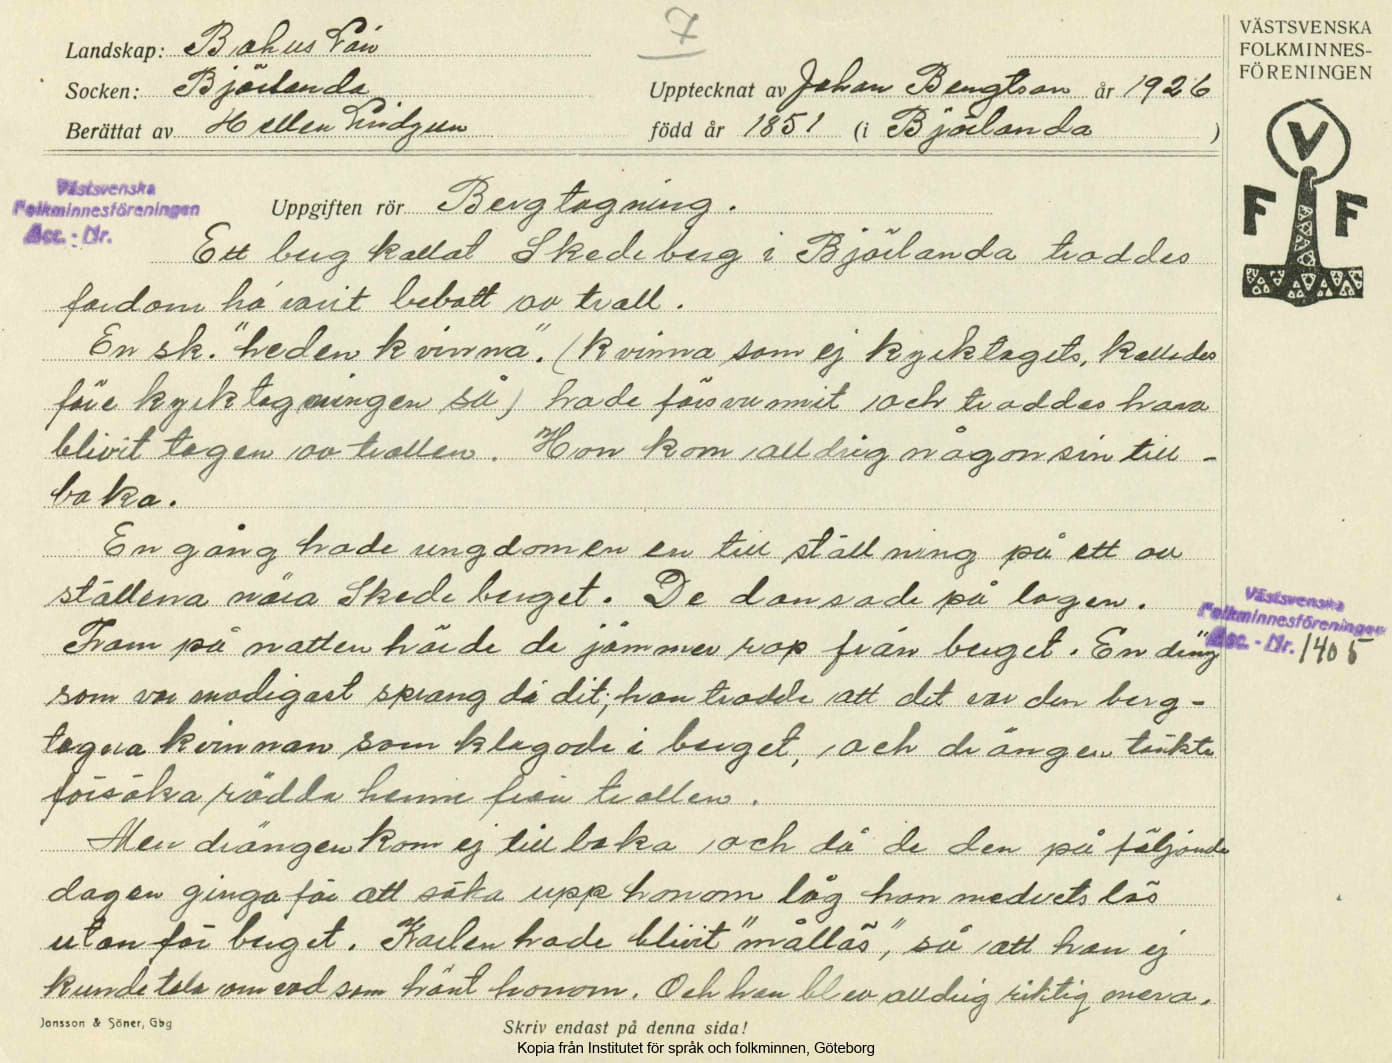 7
Landskap: Bohus Län
Socken: Björlanda
Upptecknat av Johan Bengtson år 1926
Berättat av Hellen Lindgren
född år 1851 (i Björlanda )
VÄSTSVENSKA
FOLKMINNES-
FÖRENINGEN
V
F F
Västsvenska
Folkminnesföreningen
Acc. - Nr.
Uppgiften rör Bergtagning.
Ett berg kallat Skedeberg i Björlanda troddes
fordom há varit bebott av troll.
En sk. "heden kvinna". (kvinna som ej kyrktagits, kallades
före kyrktagningen så) hade försvunnit och troddes hava
blivit tagen av trollen. Hon kom alldrig någonsin till-
baka.
En gång hade ungdomen en tillställning på ett av
ställena nära Skedeberget. De dansade på logen.
Fram på natten hörde de jämmer rop från berget. En dräng
som var modigast sprang då dit; han trodde att det var den berg-
tagna kvinnan som klagode i berget, och drängen tänkte
försöka rädda henne från trollen.
Men drängen kom ej tillbaka och då de den på följande
dagen gingo för att söka upp honom låg han medvetslös
utanför berget. Karlen hade blivit "mållös", så att han ej
kunde tala om vad som hänt honom. Och han blev alldrig riktig mera.
Västsvenska
Folkminnesföreningen
Acc. - Nr. 1405
Jonsson & Söner, Gbg
Skriv endast på denna sida!
Kopia från Institutet för språk och folkminnen, Göteborg